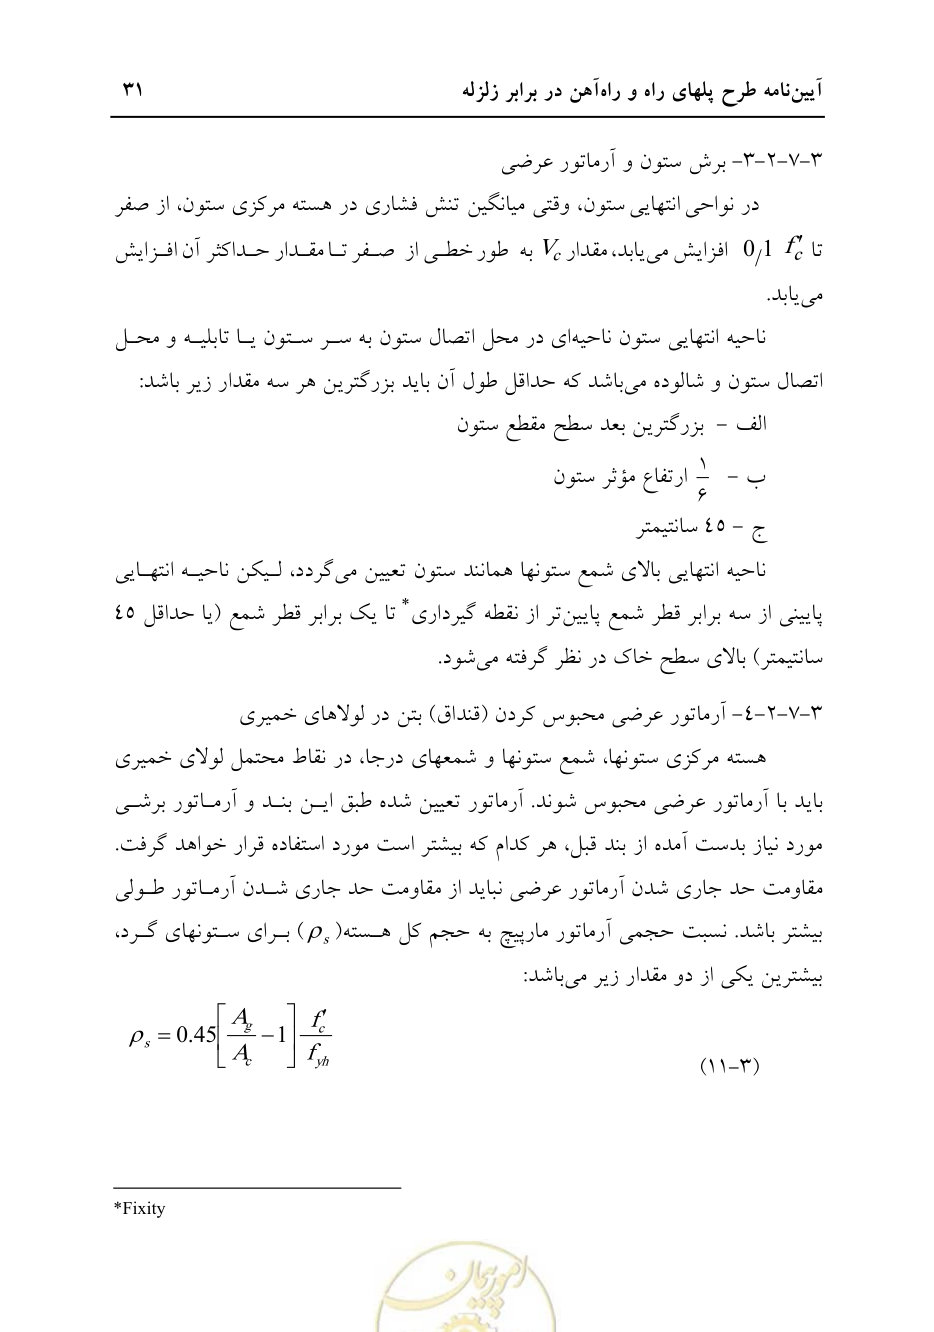 آیین‌نامه طرح پلهای راه و راه‌آهن در برابر زلزله ۳۱
۳-۷-۲-۳- برش ستون و آرماتور عرضی
در نواحی انتهایی ستون، وقتی میانگین تنش فشاری در هسته مرکزی ستون، از صفر
تا 0/1 f′c افزایش می‌یابد، مقدار Vc به طور خطی از صفر تا مقدار حداکثر آن افزایش
می‌یابد.
ناحیه انتهایی ستون ناحیه‌ای در محل اتصال ستون به سر ستون یا تابلیه و محل
اتصال ستون و شالوده می‌باشد که حداقل طول آن باید بزرگترین هر سه مقدار زیر باشد:
الف - بزرگترین بعد سطح مقطع ستون
ب - ۱/۶ ارتفاع مؤثر ستون
ج - ٤٥ سانتیمتر
ناحیه انتهایی بالای شمع ستونها همانند ستون تعیین می‌گردد، لیکن ناحیه انتهایی
پایینی از سه برابر قطر شمع پایین‌تر از نقطه گیرداری* تا یک برابر قطر شمع (یا حداقل ٤٥
سانتیمتر) بالای سطح خاک در نظر گرفته می‌شود.
۳-۷-۲-٤- آرماتور عرضی محبوس کردن (قنداق) بتن در لولاهای خمیری
هسته مرکزی ستونها، شمع ستونها و شمعهای درجا، در نقاط محتمل لولای خمیری
باید با آرماتور عرضی محبوس شوند. آرماتور تعیین شده طبق این بند و آرماتور برشی
مورد نیاز بدست آمده از بند قبل، هر کدام که بیشتر است مورد استفاده قرار خواهد گرفت.
مقاومت حد جاری شدن آرماتور عرضی نباید از مقاومت حد جاری شدن آرماتور طولی
بیشتر باشد. نسبت حجمی آرماتور مارپیچ به حجم کل هسته( ρs ) برای ستونهای گرد،
بیشترین یکی از دو مقدار زیر می‌باشد:
ρs = 0.45[Ag/Ac − 1] f′c/fyh
(۳-۱۱)
*Fixity
امور پیمان